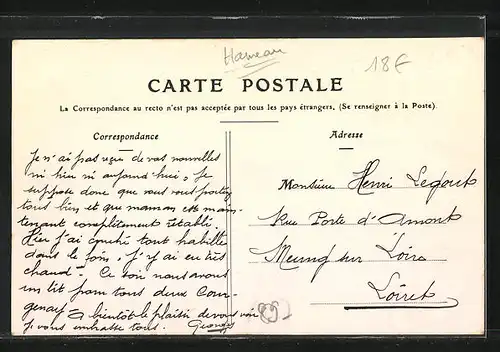 Hameau
18€
CARTE POSTALE
La Correspondance au recto n'est pas acceptée par tous les pays étrangers. (Se renseigner à la Poste).
Correspondance
Je n'ai pas reçu de vos nouvelles
ni hier ni aujourd'hui, Je
suppose donc que vous vous portez
tous bien et que maman est main-
tenant complètement rétabli.
Hier j'ai couché tout habillé
dans le foin, j'y ai eu très
chaud. Ce soir nous avons
un lit pour tous deux
A bientôt le plaisir de vous voir
Je vous embrasse tous. Georges
Adresse
Monsieur Henri Legout
Rue Porte d'Amont
Meung sur Loire
Loiret